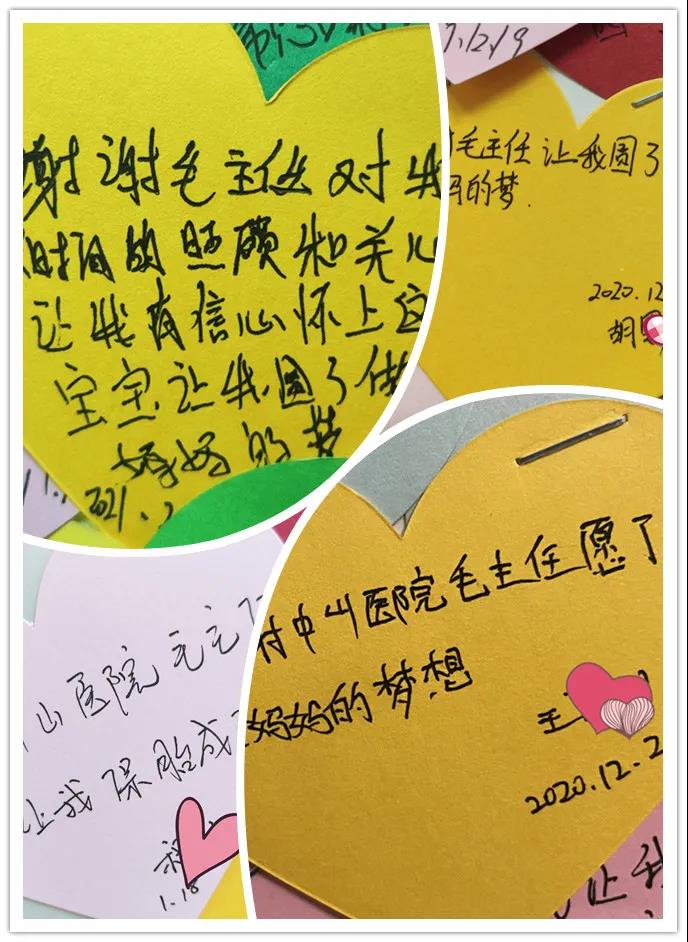 谢谢毛主任对我
时间的照顾和关心
让我有信心怀上
宝宝让我圆了做
妈妈的梦
2021.
.12.19
毛主任让我圆了
妈的梦.
2020.12
胡
山医院毛主任
让我保胎成
1.18
中山医院毛主任愿了
妈妈的梦想
王
2020.12.2
让我